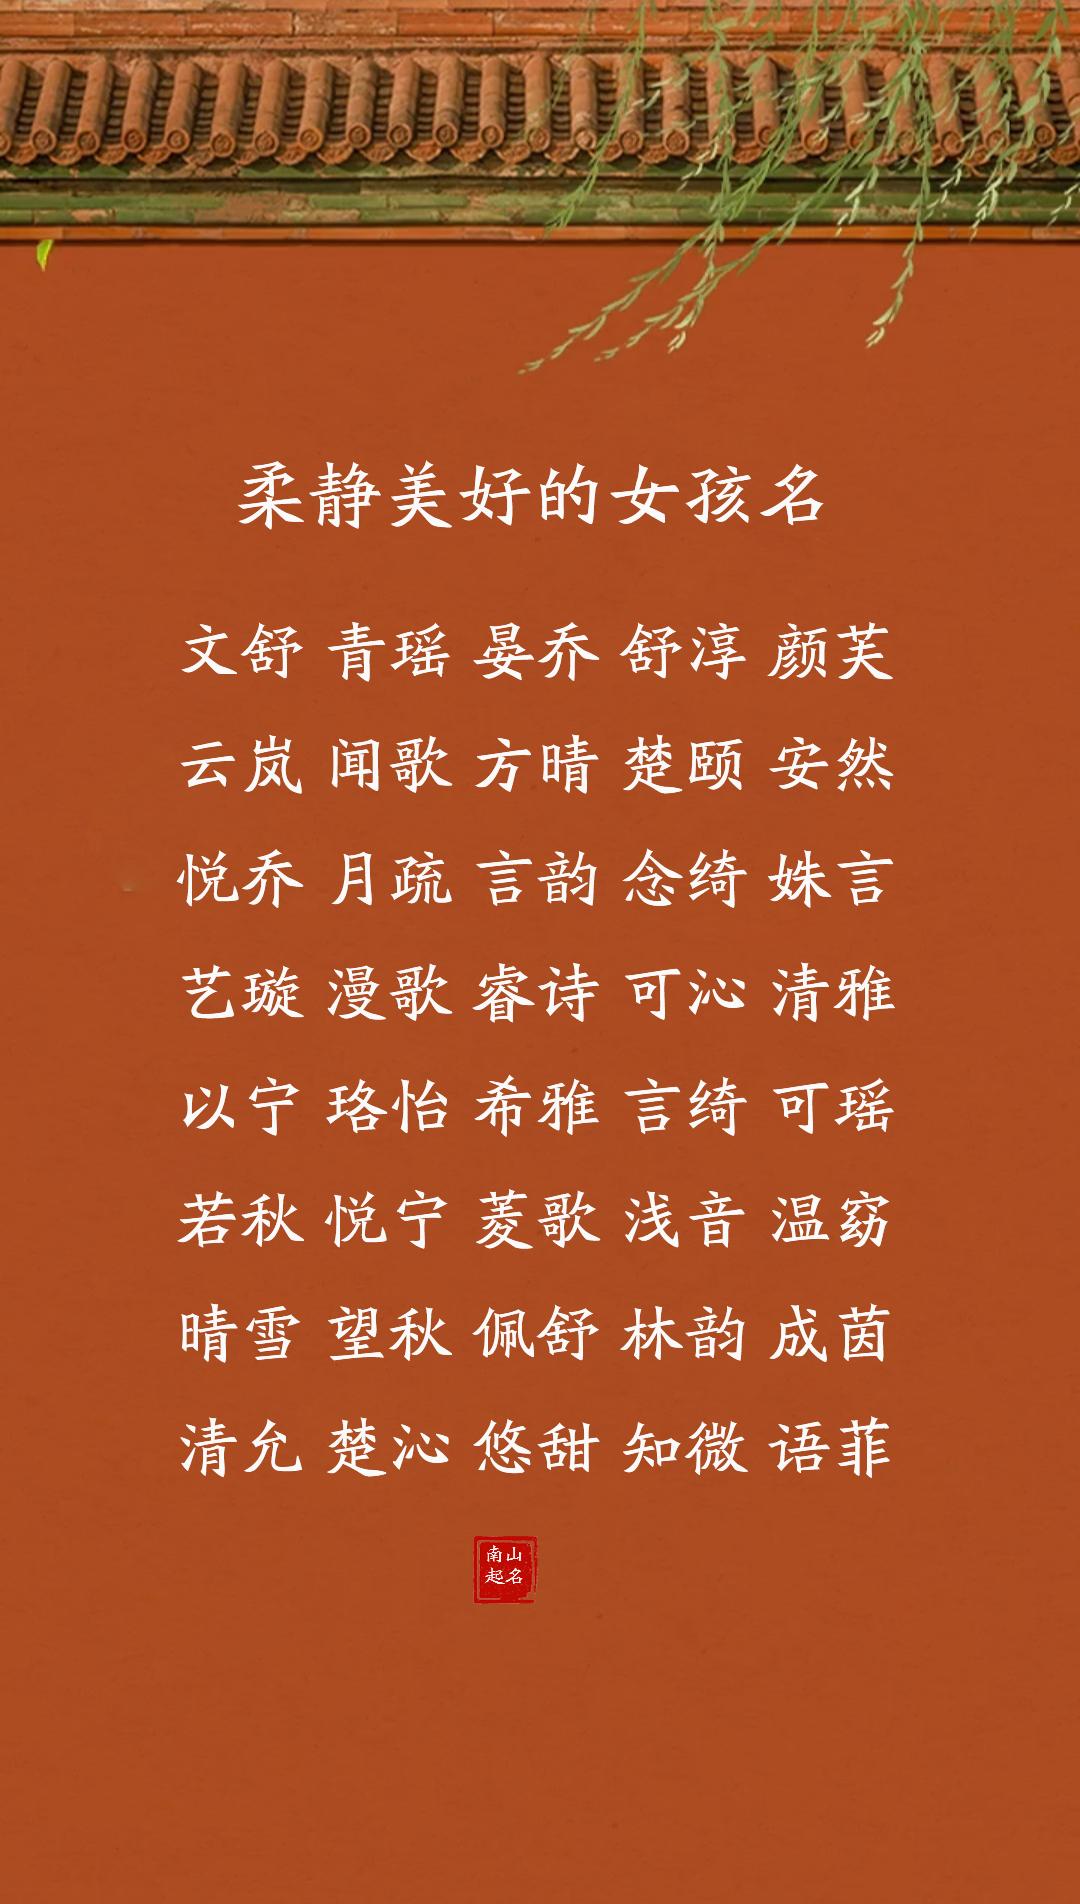 柔静美好的女孩名
文舒 青瑶 晏乔 舒淳 颜芙
云岚 闻歌 方晴 楚颐 安然
悦乔 月疏 言韵 念绮 姝言
艺璇 漫歌 睿诗 可沁 清雅
以宁 珞怡 希雅 言绮 可瑶
若秋 悦宁 菱歌 浅音 温窈
晴雪 望秋 佩舒 林韵 成茵
清允 楚沁 悠甜 知微 语菲
南山
起名